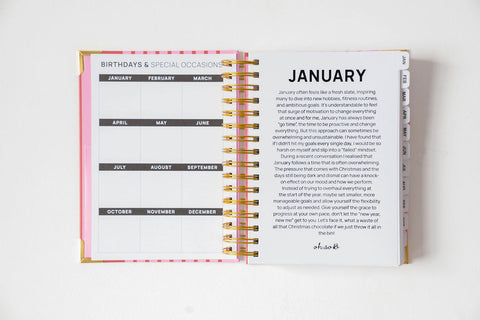 BIRTHDAYS & SPECIAL OCCASIONS
JANUARY FEBRUARY MARCH
APRIL MAY JUNE
JULY AUGUST SEPTEMBER
OCTOBER NOVEMBER DECEMBER
JANUARY
January often feels like a fresh slate, inspiring
many to dive into new hobbies, fitness routines,
and ambitious goals. It's understandable to feel
that surge of motivation to change everything
at once and for me, January has always been
"go time", the time to be proactive and change
everything. But this approach can sometimes be
overwhelming and unsustainable. I have found that
if I didn't hit my goals every single day, I would be so
harsh on myself and slip into a "failed" mindset.
During a recent conversation I realised that
January follows a time that is often overwhelming.
The pressure that comes with Christmas and the
days still being dark and dismal can have a knock-
on effect on our mood and how we perform.
Instead of trying to overhaul everything at
the start of the year, maybe set smaller, more
manageable goals and allow yourself the flexibility
to adjust as needed. Give yourself the grace to
progress at your own pace, don't let the "new year,
new me" get to you. Let's face it, what a waste of
all that Christmas chocolate if we just throw it all in
the bin!
JAN
FEB
MAR
APR
MAY
JUN